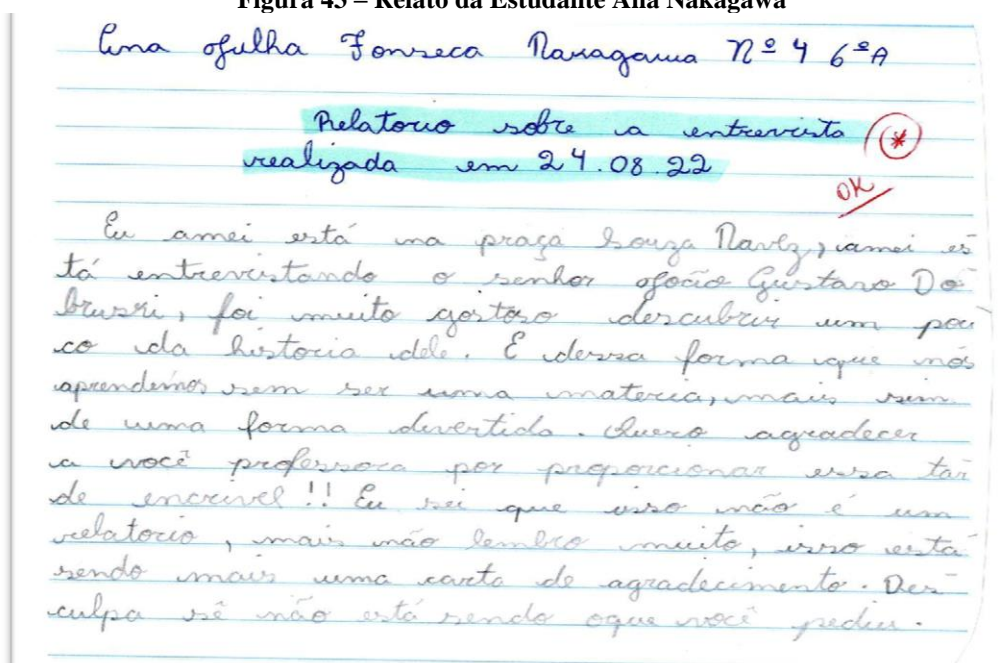 Figura 45 – Relato da Estudante Ana Nakagawa
Ana Julha Fonseca Nakagawa Nº 4 6ºA
Relatorio sobre a entrevista
realizada em 24.08.22
OK
Eu amei está na praça Souza Naves, amei es
tá entrevistando o senhor João Gustavo Do
bruski, foi muito gostoso descubrir um pou
co da historia dele. É dessa forma que nós
aprendemos sem ser uma materia, mais sim
de uma forma divertida. Quero agradecer
a você professora por proporcionar essa tar
de encrivel!! Eu sei que isso não é um
relatorio, mais não lembro muito, isso está
sendo mais uma carta de agradecimento. Des
culpa sê não está sendo oque você pediu.